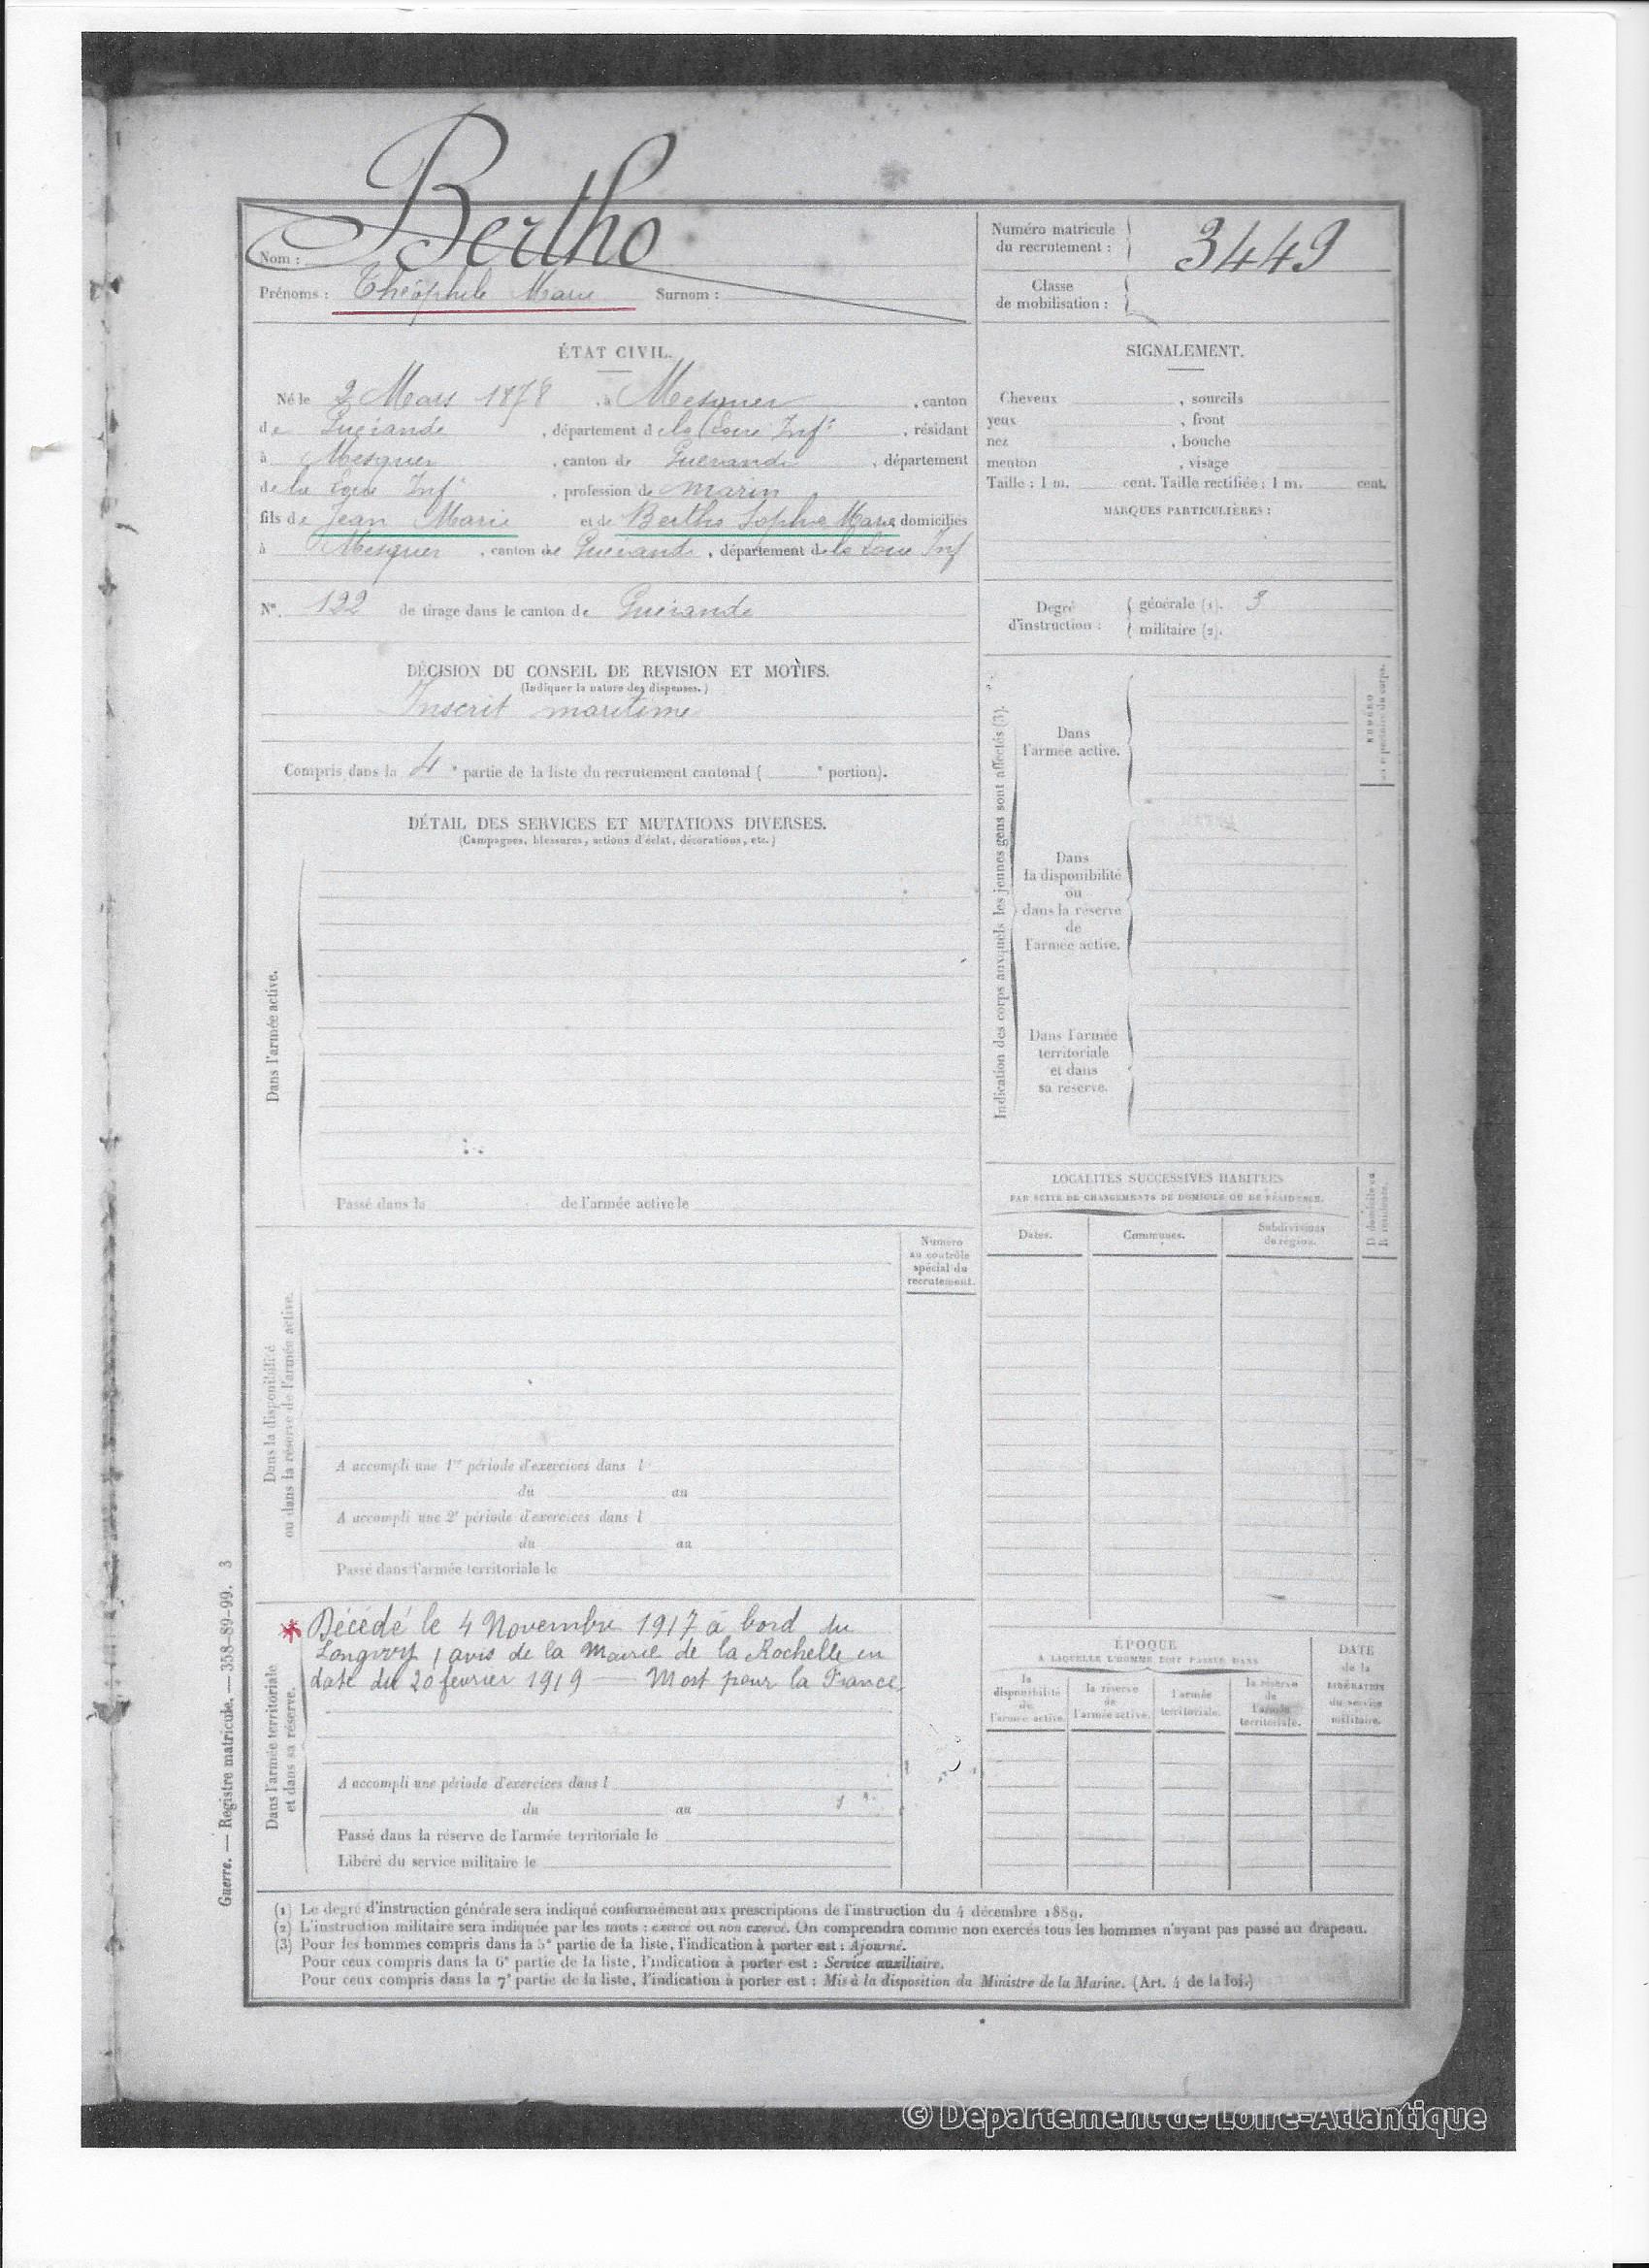 Bertho
Nom :
Prénoms : Théophile Marie Surnom :
Numéro matricule
du recrutement : 3449
Classe
de mobilisation :
ÉTAT CIVIL.
Né le 2 Mars 1878, à Mesquer, canton
de Guérande, département de la Loire Infre, résidant
à Mesquer, canton de Guérande, département
de la Loire Infre, profession de marin
fils de Jean Marie et de Bertho Sophie Marie domiciliés
à Mesquer, canton de Guérande, département de la Loire Inf
N°. 122 de tirage dans le canton de Guérande
SIGNALEMENT.
Cheveux , sourcils
yeux , front
nez , bouche
menton , visage
Taille : 1 m. cent. Taille rectifiée : 1 m. cent.
MARQUES PARTICULIÈRES :
Degré
d'instruction :
générale (1). 3
militaire (2).
DÉCISION DU CONSEIL DE REVISION ET MOTIFS.
(Indiquer la nature des dispenses.)
Inscrit maritime
Compris dans la 4e partie de la liste du recrutement cantonal ( e portion).
DÉTAIL DES SERVICES ET MUTATIONS DIVERSES.
(Campagnes, blessures, actions d'éclat, décorations, etc.)
Dans l'armée active.
Passé dans la de l'armée active le
Indication des corps auxquels les jeunes gens sont affectés (3).
Dans
l'armée active.
Dans
la disponibilité
ou
dans la réserve
de
l'armée active.
Dans l'armée
territoriale
et dans
sa réserve.
NUMÉRO
LOCALITÉS SUCCESSIVES HABITÉES
PAR SUITE DE CHANGEMENTS DE DOMICILE OU DE RÉSIDENCE.
Dates.
Communes.
Subdivisions
de région.
D. domicile ou
R. résidence.
Numéro
au contrôle
spécial du
recrutement.
Dans la disponibilité
ou dans la réserve de l'armée active.
A accompli une 1re période d'exercices dans l
du au
A accompli une 2e période d'exercices dans l
du au
Passé dans l'armée territoriale le
Dans l'armée territoriale
et dans sa réserve.
* Décédé le 4 Novembre 1917 à bord du
Longwy (avis de la Mairie de la Rochelle en
date du 20 février 1919 — Mort pour la France.
A accompli une période d'exercices dans l
du au
Passé dans la réserve de l'armée territoriale le
Libéré du service militaire le
ÉPOQUE
À LAQUELLE L'HOMME DOIT PASSER DANS
la
disponibilité
de
l'armée active.
la réserve
de
l'armée active.
l'armée
territoriale.
la réserve
de
l'armée
territoriale.
DATE
de la
LIBÉRATION
du service
militaire.
Guerre. — Registre matricule. — 358-89-99. 3
(1) Le degré d'instruction générale sera indiqué conformément aux prescriptions de l'instruction du 4 décembre 1889.
(2) L'instruction militaire sera indiquée par les mots : exercé ou non exercé. On comprendra comme non exercés tous les hommes n'ayant pas passé au drapeau.
(3) Pour les hommes compris dans la 5e partie de la liste, l'indication à porter est : Ajourné.
Pour ceux compris dans la 6e partie de la liste, l'indication à porter est : Service auxiliaire.
Pour ceux compris dans la 7e partie de la liste, l'indication à porter est : Mis à la disposition du Ministre de la Marine. (Art. 4 de la loi.)
© Département de Loire-Atlantique